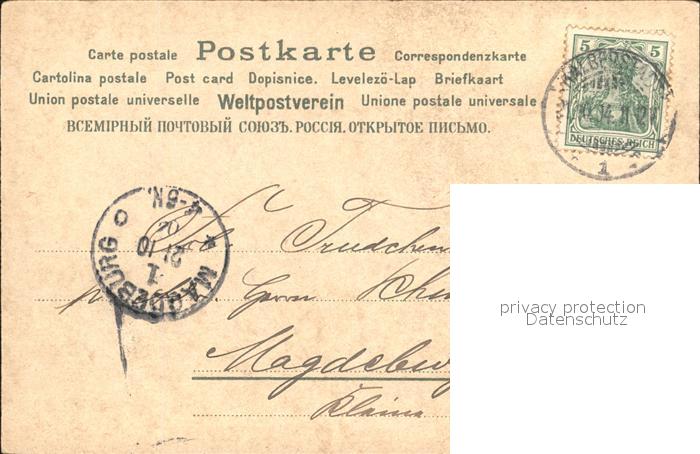 Carte postale Postkarte Correspondenzkarte
Cartolina postale Post card Dopisnice. Levelező-Lap Briefkaart
Union postale universelle Weltpostverein Unione postale universale
ВСЕМІРНЫЙ ПОЧТОВЫЙ СОЮЗЪ. РОССІЯ. ОТКРЫТОЕ ПИСЬМО.
5 5
DEUTSCHES REICH
1
MAGDEBURG
1
21 10
4-5N.
Trudchen
Herrn
Magdeburg
Kleine
privacy protection
Datenschutz